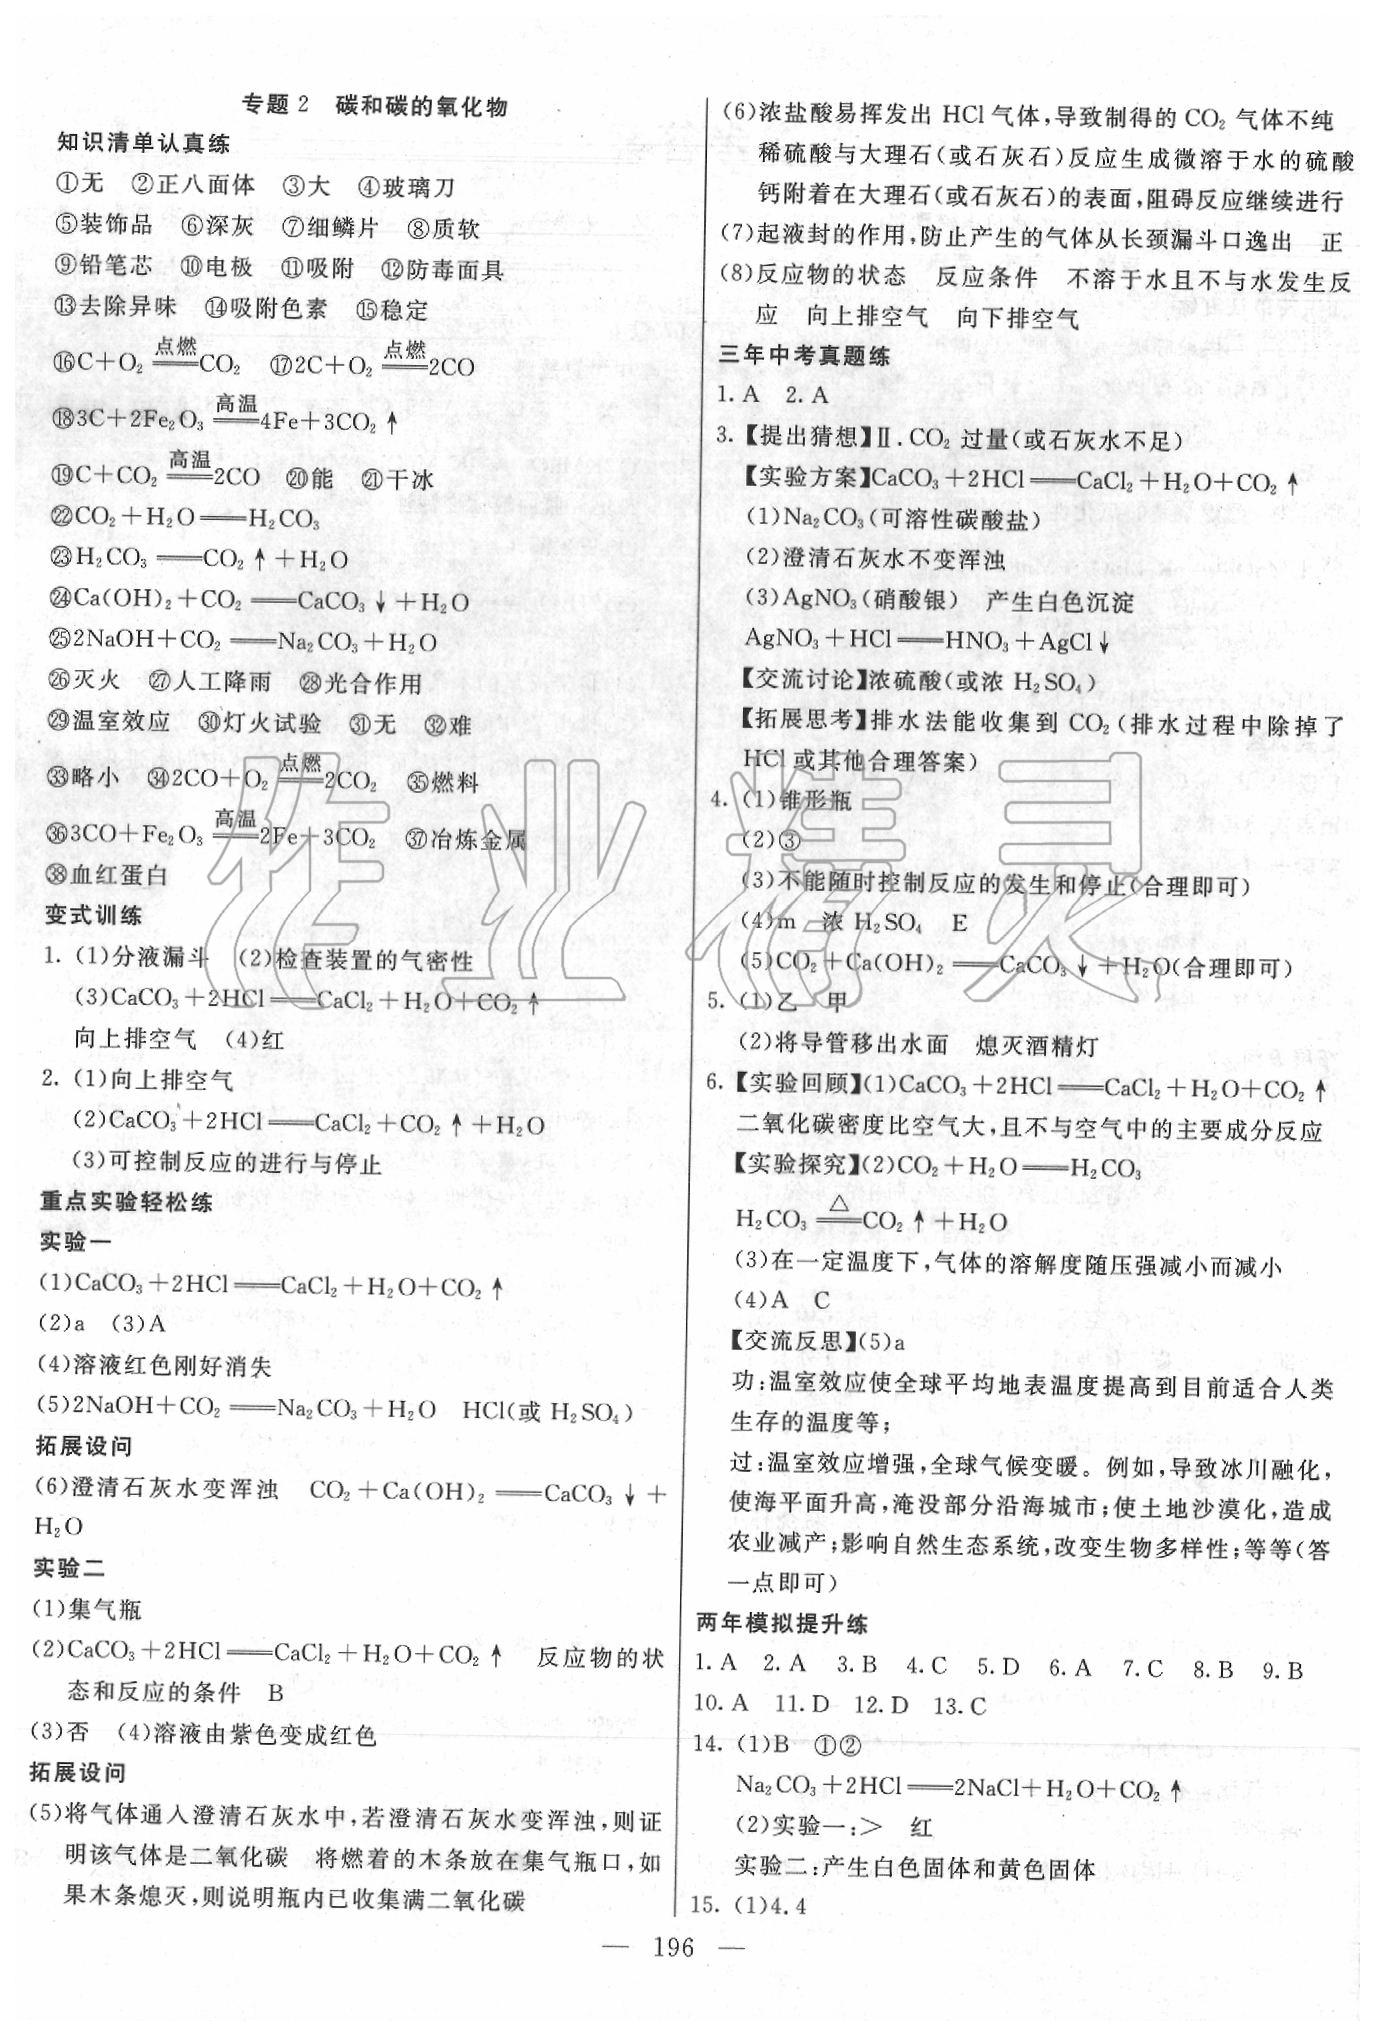 专题2 碳和碳的氧化物
知识清单认真练
①无 ②正八面体 ③大 ④玻璃刀
⑤装饰品 ⑥深灰 ⑦细鳞片 ⑧质软
⑨铅笔芯 ⑩电极 ⑪吸附 ⑫防毒面具
⑬去除异味 ⑭吸附色素 ⑮稳定
⑯C+O₂ ══点燃══ CO₂ ⑰2C+O₂ ══点燃══ 2CO
⑱3C+2Fe₂O₃ ══高温══ 4Fe+3CO₂↑
⑲C+CO₂ ══高温══ 2CO ⑳能 ㉑干冰
㉒CO₂+H₂O══H₂CO₃
㉓H₂CO₃══CO₂↑+H₂O
㉔Ca(OH)₂+CO₂══CaCO₃↓+H₂O
㉕2NaOH+CO₂══Na₂CO₃+H₂O
㉖灭火 ㉗人工降雨 ㉘光合作用
㉙温室效应 ㉚灯火试验 ㉛无 ㉜难
㉝略小 ㉞2CO+O₂ ══点燃══ 2CO₂ ㉟燃料
㊱3CO+Fe₂O₃ ══高温══ 2Fe+3CO₂ ㊲冶炼金属
㊳血红蛋白
变式训练
1. (1)分液漏斗 (2)检查装置的气密性
(3)CaCO₃+2HCl══CaCl₂+H₂O+CO₂↑
向上排空气 (4)红
2. (1)向上排空气
(2)CaCO₃+2HCl══CaCl₂+CO₂↑+H₂O
(3)可控制反应的进行与停止
重点实验轻松练
实验一
(1)CaCO₃+2HCl══CaCl₂+H₂O+CO₂↑
(2)a (3)A
(4)溶液红色刚好消失
(5)2NaOH+CO₂══Na₂CO₃+H₂O HCl(或 H₂SO₄)
拓展设问
(6)澄清石灰水变浑浊 CO₂+Ca(OH)₂══CaCO₃↓+
H₂O
实验二
(1)集气瓶
(2)CaCO₃+2HCl══CaCl₂+H₂O+CO₂↑ 反应物的状
态和反应的条件 B
(3)否 (4)溶液由紫色变成红色
拓展设问
(5)将气体通入澄清石灰水中,若澄清石灰水变浑浊,则证
明该气体是二氧化碳 将燃着的木条放在集气瓶口,如
果木条熄灭,则说明瓶内已收集满二氧化碳
(6)浓盐酸易挥发出 HCl 气体,导致制得的 CO₂ 气体不纯
稀硫酸与大理石(或石灰石)反应生成微溶于水的硫酸
钙附着在大理石(或石灰石)的表面,阻碍反应继续进行
(7)起液封的作用,防止产生的气体从长颈漏斗口逸出 正
(8)反应物的状态 反应条件 不溶于水且不与水发生反
应 向上排空气 向下排空气
三年中考真题练
1. A 2. A
3.【提出猜想】Ⅱ.CO₂ 过量(或石灰水不足)
【实验方案】CaCO₃+2HCl══CaCl₂+H₂O+CO₂↑
(1)Na₂CO₃(可溶性碳酸盐)
(2)澄清石灰水不变浑浊
(3)AgNO₃(硝酸银) 产生白色沉淀
AgNO₃+HCl══HNO₃+AgCl↓
【交流讨论】浓硫酸(或浓 H₂SO₄)
【拓展思考】排水法能收集到 CO₂(排水过程中除掉了
HCl 或其他合理答案)
4. (1)锥形瓶
(2)③
(3)不能随时控制反应的发生和停止(合理即可)
(4)m 浓 H₂SO₄ E
(5)CO₂+Ca(OH)₂══CaCO₃↓+H₂O(合理即可)
5. (1)乙 甲
(2)将导管移出水面 熄灭酒精灯
6.【实验回顾】(1)CaCO₃+2HCl══CaCl₂+H₂O+CO₂↑
二氧化碳密度比空气大,且不与空气中的主要成分反应
【实验探究】(2)CO₂+H₂O══H₂CO₃
H₂CO₃ ══△══ CO₂↑+H₂O
(3)在一定温度下,气体的溶解度随压强减小而减小
(4)A C
【交流反思】(5)a
功:温室效应使全球平均地表温度提高到目前适合人类
生存的温度等;
过:温室效应增强,全球气候变暖。例如,导致冰川融化,
使海平面升高,淹没部分沿海城市;使土地沙漠化,造成
农业减产;影响自然生态系统,改变生物多样性;等等(答
一点即可)
两年模拟提升练
1. A 2. A 3. B 4. C 5. D 6. A 7. C 8. B 9. B
10. A 11. D 12. D 13. C
14. (1)B ①②
Na₂CO₃+2HCl══2NaCl+H₂O+CO₂↑
(2)实验一:> 红
实验二:产生白色固体和黄色固体
15. (1)4.4
— 196 —
作业精灵